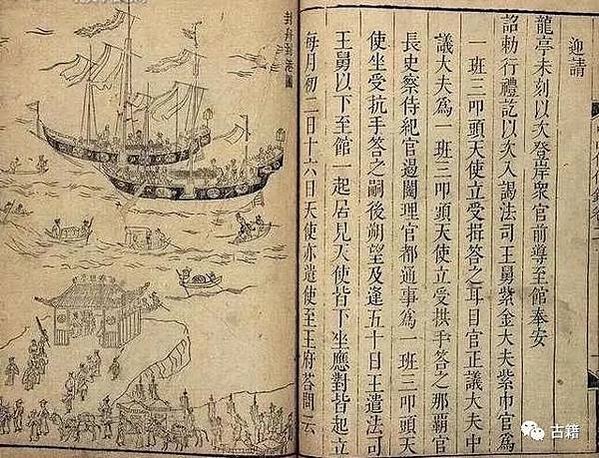 迎請
龍亭未刻以次登岸衆官前導至館奉安
詔勅行禮訖以次入謁法司王舅紫金大夫紫巾官爲
一班三叩頭天使立受揖答之耳目官正議大夫中
議大夫爲一班三叩頭天使立受拱手答之那覇官
長史察侍紀官遏闥理官都通事爲一班三叩頭天
使坐受抗手答之嗣後朔望及逢五十日王遣法司
王舅以下至館一起居見天使皆下坐應對皆起立
每月初二日十六日天使亦遣使至王府答問云
古籍